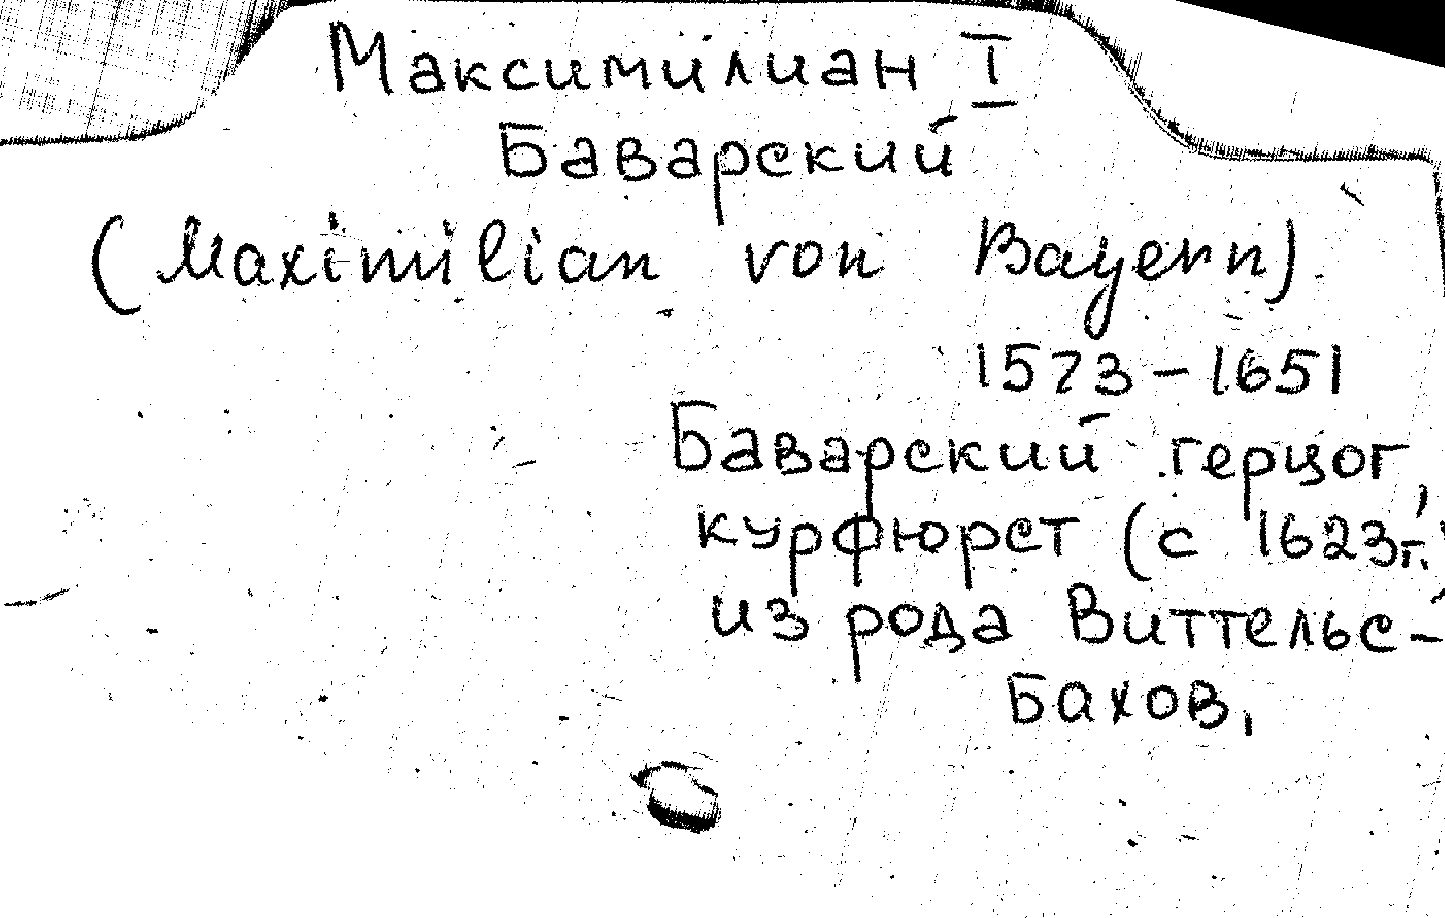 Максимилиан I
Баварский
(Maximilian von Bayern)
1573 – 1651
Баварский герцог,
курфюрст (с 1623г.)
из рода Виттельс-
бахов,